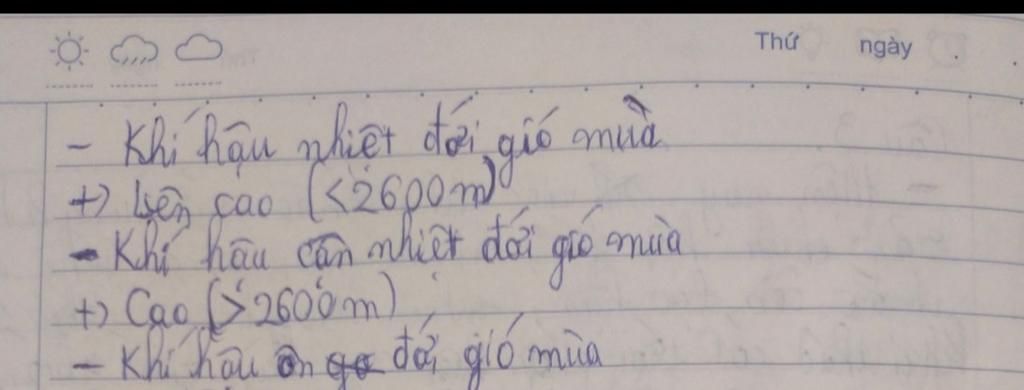 Thứ ngày
- Khí hậu nhiệt đới gió mùa
+) Lên cao (<2600m)
- Khí hậu cận nhiệt đới gió mùa
+) Cao (>2600m)
- Khí hậu ôn đới gió mùa